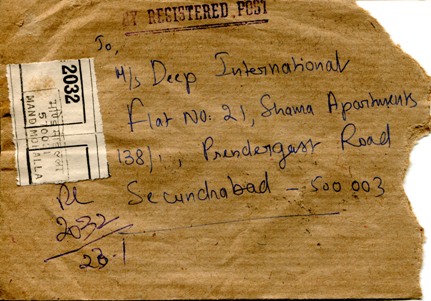 BY REGISTERED POST
To,
M/s Deep International
Flat No: 21, Shama Apartments
138/1, Prendergast Road
Secundrabad – 500 003
RL
2032
23.1
2032
MANDI MOHALLA